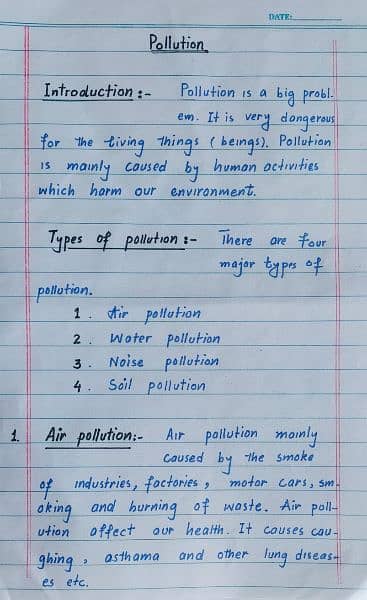 DATE:
Pollution
Introduction :- Pollution is a big probl-
em. It is very dangerous
for the living things (beings). Pollution
is mainly caused by human activities
which harm our environment.
Types of pollution :- There are four
major types of
pollution.
1. Air pollution
2. Water pollution
3. Noise pollution
4. Soil pollution
1. Air pollution:- Air pollution mainly
caused by the smoke
of industries, factories, motor cars, sm-
oking and burning of waste. Air poll-
ution affect our health. It causes cou-
ghing, asthama and other lung diseas-
es etc.